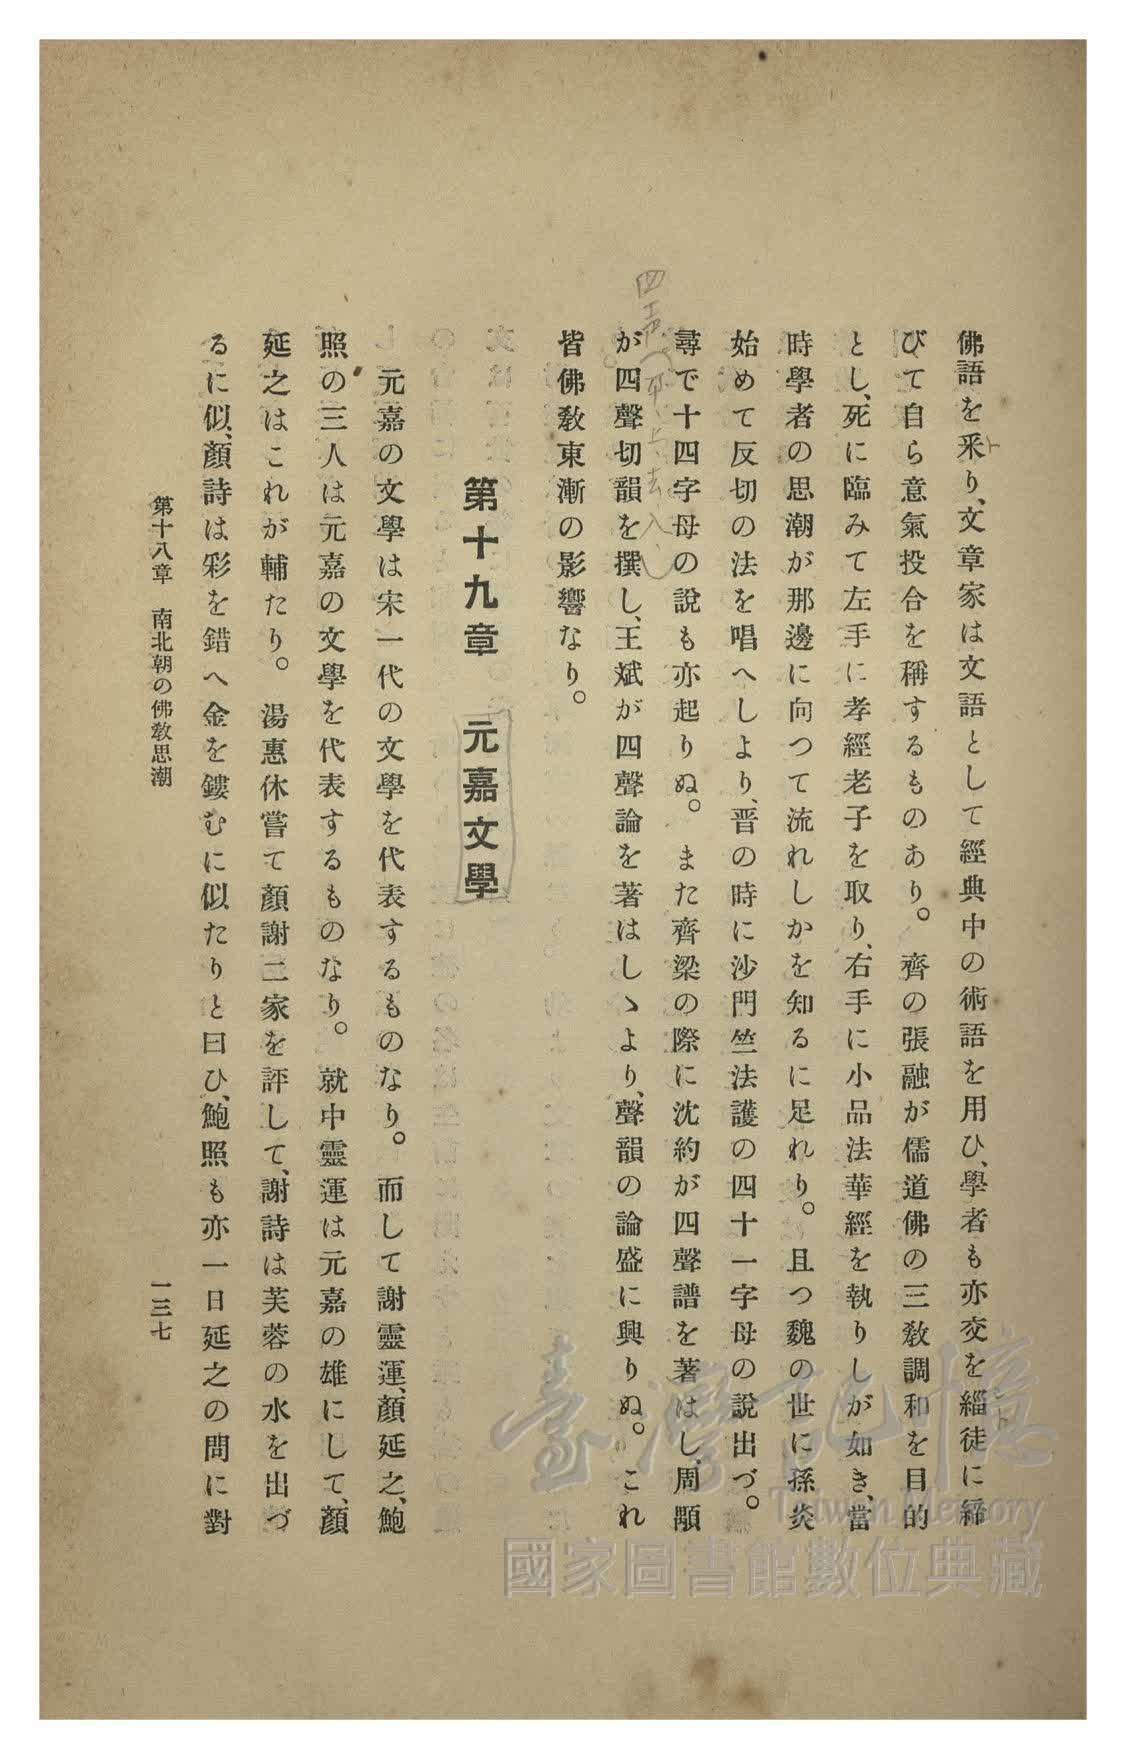 佛語を釆り、文章家は文語として經典中の術語を用ひ、學者も亦交を緇徒に締
びて自ら意氣投合を稱するものあり。齊の張融が儒道佛の三敎調和を目的
とし、死に臨みて左手に孝經老子を取り、右手に小品法華經を執りしが如き、當
時學者の思潮が那邊に向つて流れしかを知るに足れり。且つ魏の世に孫炎
始めて反切の法を唱へしより、晋の時に沙門竺法護の四十一字母の說出づ。
尋で十四字母の說も亦起りぬ。また齊梁の際に沈約が四聲譜を著はし、周顒
が四聲切韻を撰し、王斌が四聲論を著はしゝより、聲韻の論盛に興りぬ。これ
皆佛敎東漸の影響なり。
四声（平上去入）
第十九章 元嘉文學
元嘉の文學は宋一代の文學を代表するものなり。而して謝靈運、顏延之、鮑
照の三人は元嘉の文學を代表するものなり。就中靈運は元嘉の雄にして、顏
延之はこれが輔たり。湯惠休嘗て顏謝二家を評して、謝詩は芙蓉の水を出づ
るに似、顏詩は彩を錯へ金を鏤むに似たりと曰ひ、鮑照も亦一日延之の問に對
第十八章 南北朝の佛敎思潮
一三七
臺灣記憶
Taiwan Memory
國家圖書館數位典藏